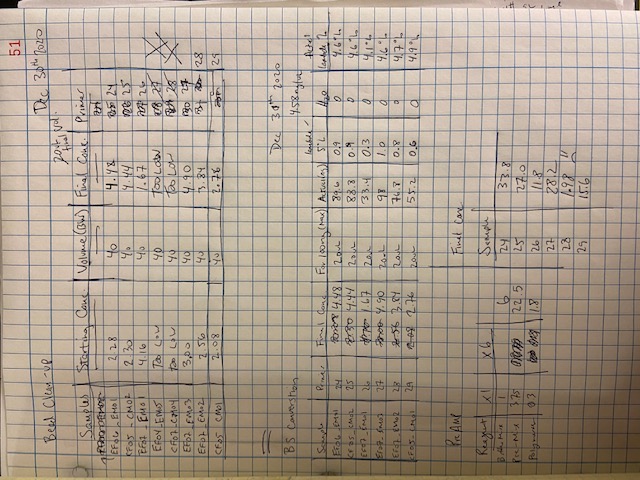 51
Bead Clean-up Dec 30th 2020
20uL final vol.
Samples Starting Conc. Volume (BW) Final Conc. Primer
EF06_EM01 2.28 40 4.48 24
CF05_CM02 2.30 40 4.44 25
EF07_EM01 4.16 40 1.67 26
EF04_EM05 Too Low 40 Too Low 27
CF07_CM04 Too Low 40 Too Low 28
EF07_EM03 3.00 40 4.90 27
EF07_EM02 2.56 40 3.84 28
CF05_CM01 2.08 40 2.76 29
Dec 30th 2020
BS Conversion 4.58ng/uL
Sample Primer Final Conc For 100ng (Max) Actual(ng) lambda 5% H2O Actual lambda %
EF06_EM01 24 4.48 20uL 89.6 0.9 0 4.6%
CF05_CM02 25 4.44 20uL 88.8 0.9 0 4.6%
EF07_EM01 26 1.67 20uL 33.4 0.3 0 4.1%
EF07_EM03 27 4.90 20uL 98 1.0 0 4.6%
EF07_EM02 28 3.84 20uL 76.8 0.8 0 4.7%
CF05_CM01 29 2.76 20uL 55.2 0.6 0 4.9%
PreAMP Final Conc
Reagent x1 x6 Sample
1 6 24 33.8
Pre-Mix 3.75 22.5 25 27.0
Polymerase 0.3 1.8 26 11.8
27 28.2
28 1.98
29 15.6